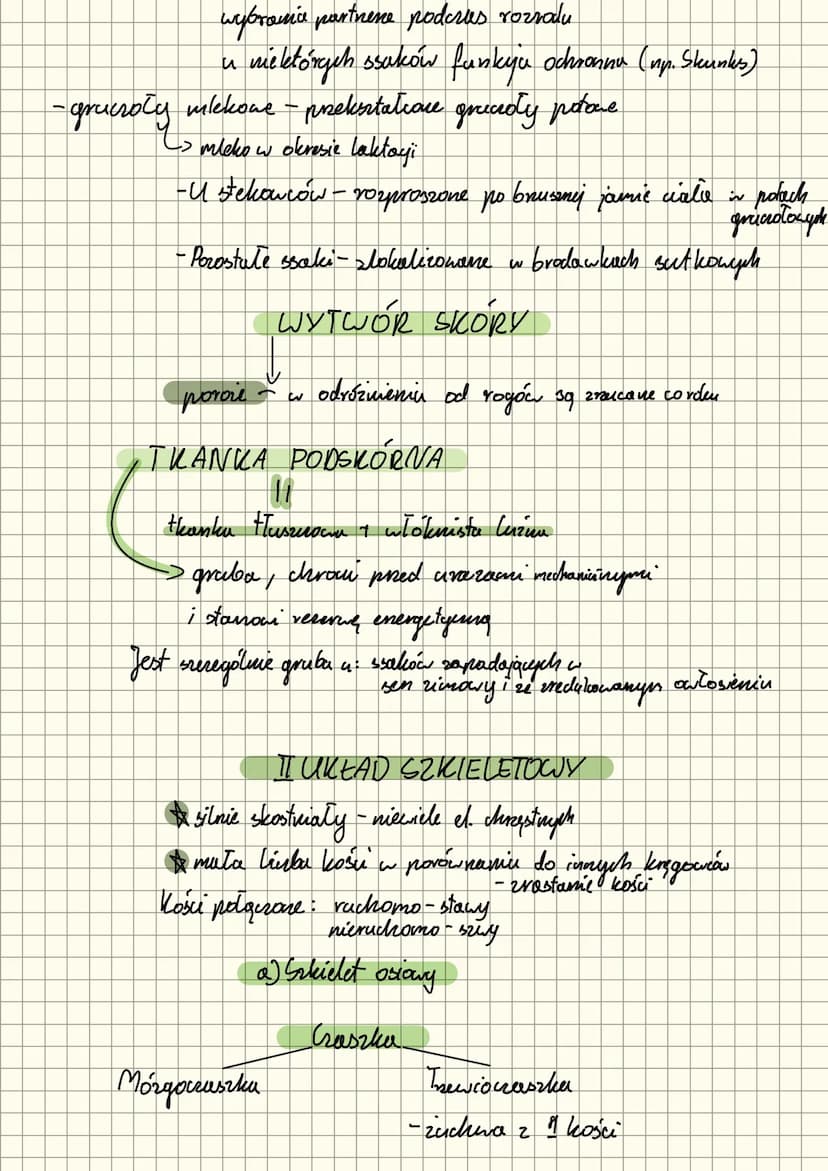 wybrania partnera podczas rozrodu
u niektórych ssaków funkcja ochronna (np. Skunks)
- gruczoły mlekowe - przekształcone gruczoły potowe
↳ mleko w okresie laktacji
- U stekowców - rozproszone po brusznej jamie ciała w polach
gruczołowych
- Pozostałe ssaki - zlokalizowane w brodawkach sutkowych
WYTWÓR SKÓRY
poroże - w odróżnieniu od rogów są zrzucane co roku
TKANKA PODSKÓRNA
=
tkanka tłuszczowa + włóknista luźna
gruba, chroni przed urazami mechanicznymi
i stanowi rezerwę energetyczną
Jest szczególnie gruba u: ssaków zapadających w
sen zimowy i ze zredukowanym owłosieniu
II UKŁAD SZKIELETOWY
☆ silnie skostniały - niewiele el. chrzęstnych
☆ mała liczba kości w porównaniu do innych kręgowców
- zrastanie kości
Kości połączone: ruchomo - stawy
nieruchomo - szwy
a) Szkielet osiowy
Czaszka
Mózgoczaszka Trzewioczaszka
- żuchwa z 1 kości